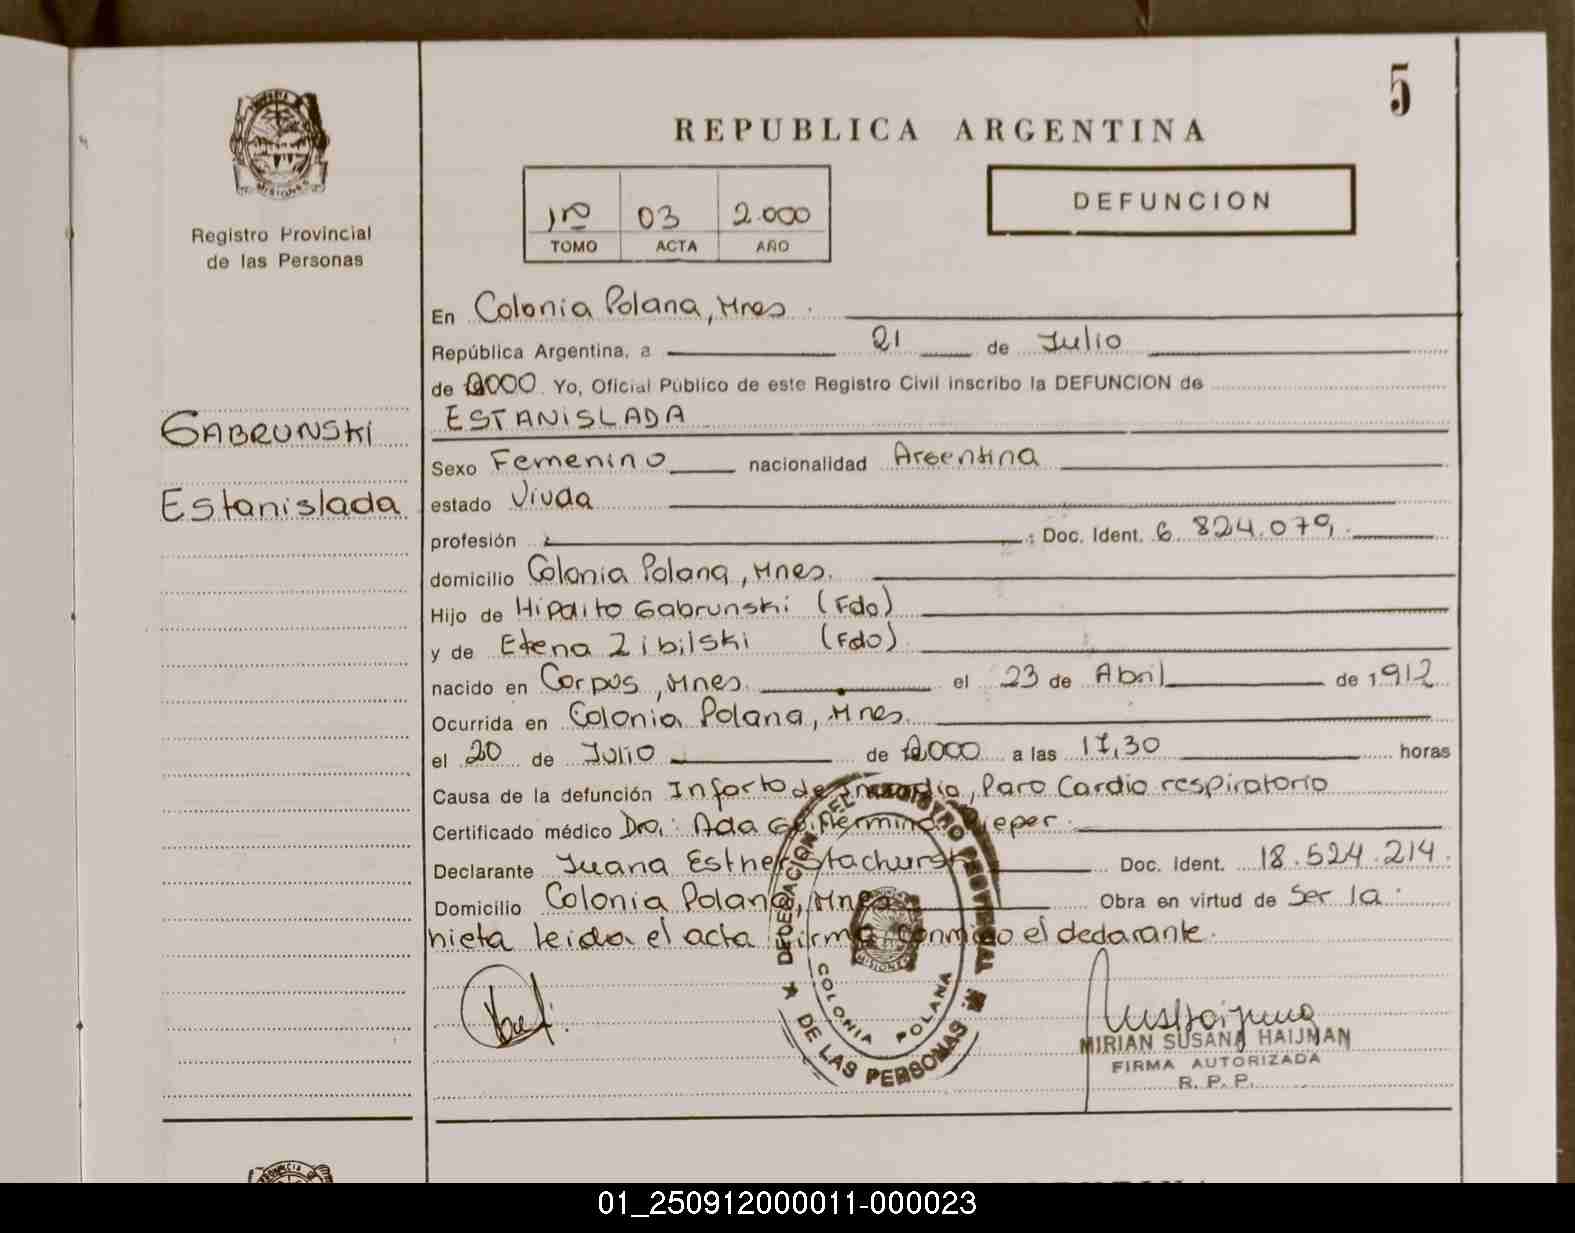 5
REPUBLICA ARGENTINA
Registro Provincial
de las Personas
1ro 03 2.000
TOMO ACTA AÑO
DEFUNCION
GABRUNSKI
Estanislada
En Colonia Polana, Mnes.
República Argentina, a 21 de Julio
de 2000 Yo, Oficial Público de este Registro Civil inscribo la DEFUNCION de
ESTANISLADA
Sexo Femenino nacionalidad Argentina
estado Viuda
profesión ; Doc. Ident. 6.824.079
domicilio Colonia Polana, Mnes.
Hijo de Hipolito Gabrunski (Fdo)
y de Elena Zibilski (Fdo)
nacido en Corpus, Mnes. el 23 de Abril de 1912
Ocurrida en Colonia Polana, Mnes.
el 20 de Julio de 2000 a las 17,30 horas
Causa de la defunción Infarto de , Paro Cardio respiratorio
Certificado médico Dra: Ada Rieper.
Declarante Juana Esther Stachurski Doc. Ident. 18.524.214.
Domicilio Colonia Polana, Mnes Obra en virtud de Ser la
nieta leida el acta firma conmigo el declarante.
DELEGACION DEL REGISTRO PROVINCIAL
DE LAS PERSONAS
COLONIA POLANA
MISIONES
MIRIAN SUSANA HAIJMAN
FIRMA AUTORIZADA
R. P. P.
01_250912000011-000023